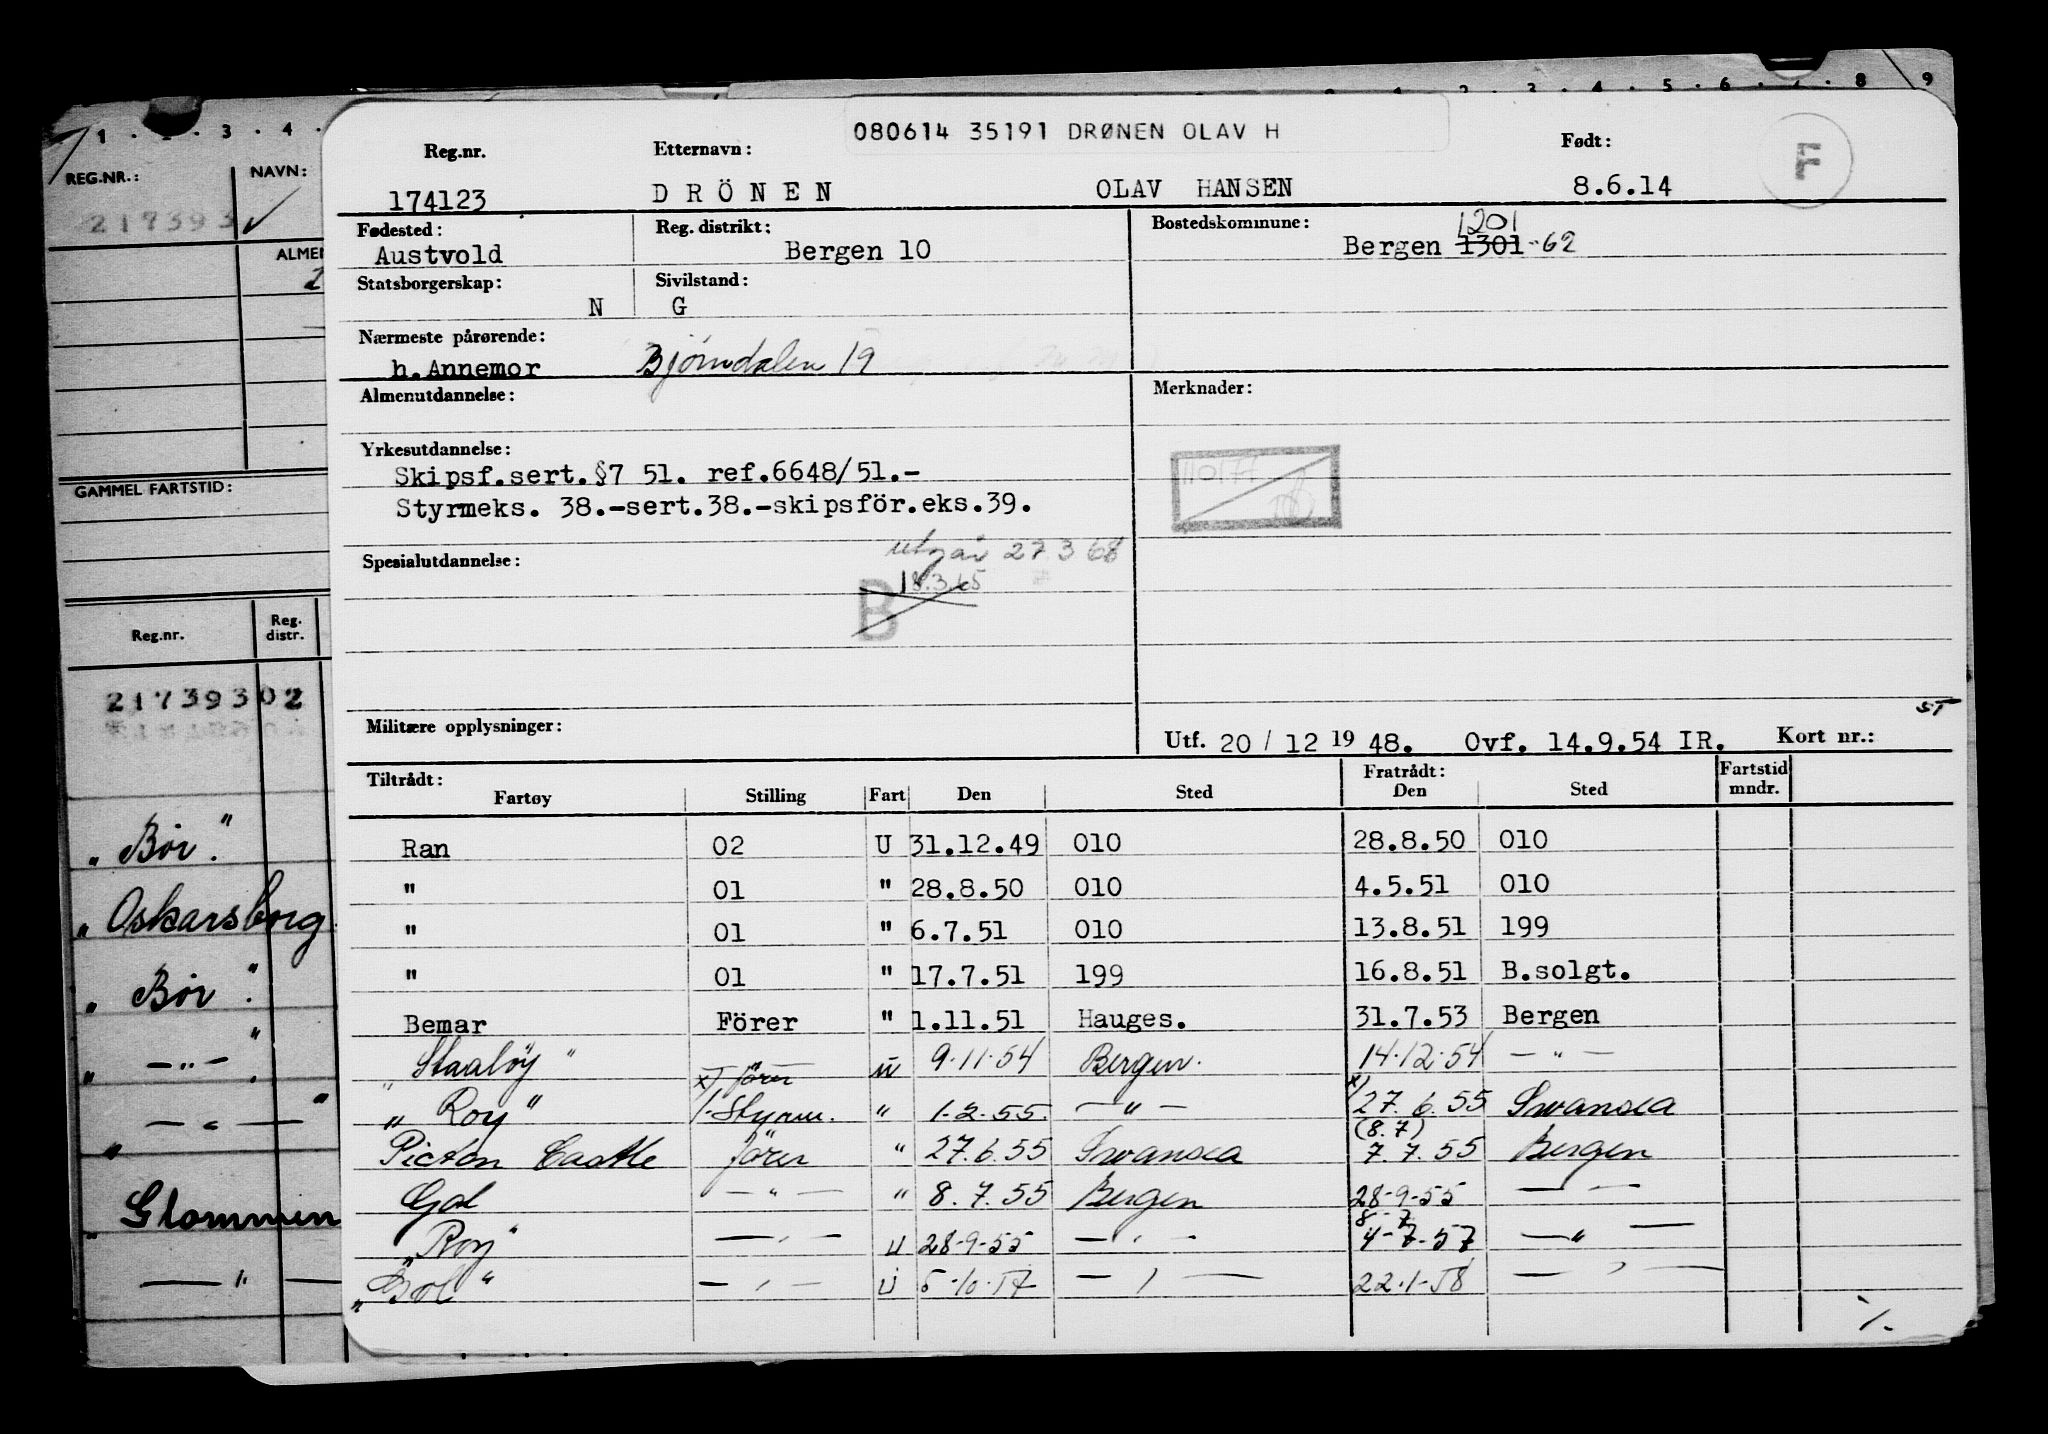 1 . 2 . 3 . 4 .
2 . 1 . 2 . 3 . 4 . 5 . 6 . 7 . 8 9
REG.NR.: NAVN:
217393
ALMEN
GAMMEL FARTSTID:
Reg.nr. Reg. distr.
21739302
"Bör".
"Oskarsborg
"Bör".
" — " — "
" — " — "
"Glommen
— " —
080614 35191 DRØNEN OLAV H
Reg.nr. Etternavn: Født: F
174123 DRÖNEN OLAV HANSEN 8.6.14
Fødested: Reg. distrikt: Bostedskommune: 1201
Austvold Bergen 10 Bergen 1301-62
Statsborgerskap: Sivilstand:
N G
Nærmeste pårørende:
h.Annemor Bjørndalen 19
Almenutdannelse: Merknader:
Yrkesutdannelse:
Skipsf.sert.§7 51. ref.6648/51.-
110177
Styrmeks. 38.-sert.38.-skipsför.eks.39.
utgår 27 3 68
Spesialutdannelse:
18.3.65
B
ST
Militære opplysninger:
Utf. 20 / 12 19 48. Ovf. 14.9.54 IR. Kort nr.:
Tiltrådt: Fratrådt: Fartstid mndr.
Fartøy Stilling Fart Den Sted Den Sted
Ran 02 U 31.12.49 010 28.8.50 010
" 01 " 28.8.50 010 4.5.51 010
" 01 " 6.7.51 010 13.8.51 199
" 01 " 17.7.51 199 16.8.51 B.solgt.
Bemar Förer " 1.11.51 Hauges. 31.7.53 Bergen
"Staaløy" — förer u 9.11.54 Bergen. 14.12.54 — " —
"Roy" x) 1.Styrm. " 1.2.55. — " — x) 27.6.55 Swansea
(8.7)
Picton Castle förer " 27.6.55 Swansea 7.7.55 Bergen
Gol — " — " 8.7.55 Bergen 28-9-55 — —
8-7
"Roy" — " — u 28-9-55 — " — 4-7-57 — " —
"Gol" — " — u 5-10-57 — " — 22.1-58 — " —
%.